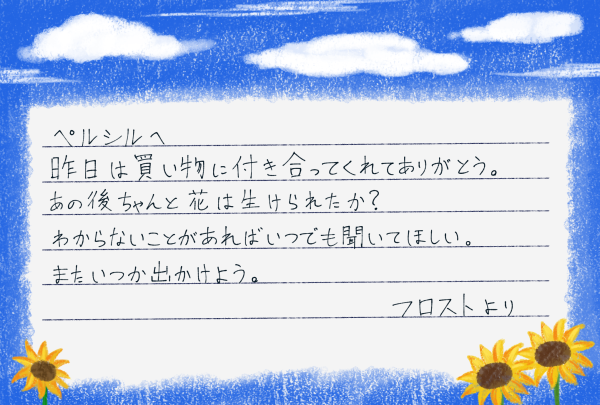 ペルシルへ
昨日は買い物に付き合ってくれてありがとう。
あの後ちゃんと花は生けられたか?
わからないことがあればいつでも聞いてほしい。
またいつか出かけよう。
フロストより